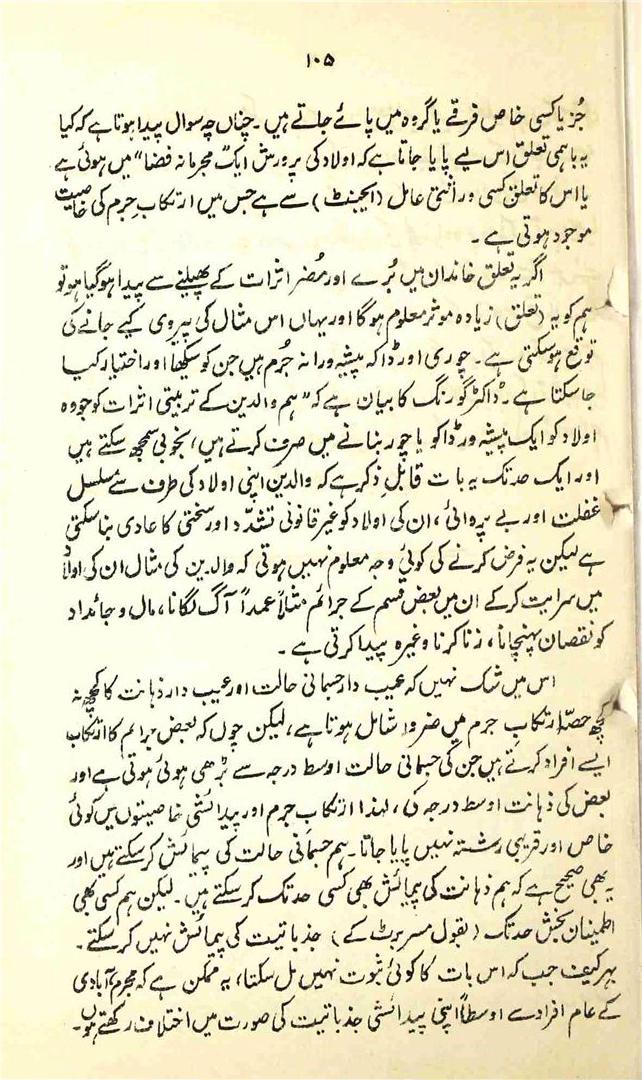 ۱۰۵
جُز یا کسی خاص فرقے یا گروہ میں پائے جاتے ہیں۔ چناں چہ سوال پیدا ہوتا ہے کہ کیا
یہ باہمی تعلق اس لیے پایا جاتا ہے کہ اولاد کی پرورش ایک "مجرمانہ فضا" میں ہوئی ہے
یا اس کا تعلق کسی وراثتی عامل (ایجینٹ) سے ہے جس میں ارتکابِ جرم کی خاصیت
موجود ہوتی ہے۔
اگر یہ تعلق خاندان میں بُرے اور مُضر اثرات کے پھیلنے سے پیدا ہوگیا ہو تو
ہم کو یہ (تعلق) زیادہ موثر معلوم ہوگا اور یہاں اس مثال کی پیروی کیے جانے کی
توقع ہوسکتی ہے۔ چوری اور ڈاکہ پیشہ ورانہ جُرم ہیں جن کو سیکھا اور اختیار کیا
جاسکتا ہے۔ ڈاکٹر گورنگ کا بیان ہے کہ "ہم والدین کے تربیتی اثرات کو جو وہ
اولاد کو ایک پیشہ ور ڈاکو یا چور بنانے میں صرف کرتے ہیں، بخوبی سمجھ سکتے ہیں
اور ایک حد تک یہ بات قابلِ ذکر ہے کہ والدین اپنی اولاد کی طرف سے مسلسل
غفلت اور بے پروائی، ان کی اولاد کو غیر قانونی تشدّد اور سختی کا عادی بنا سکتی
ہے لیکن یہ فرض کرنے کی کوئی وجہ معلوم نہیں ہوتی کہ والدین کی مثال ان کی اولاد
میں سرایت کرکے ان میں بعض قسم کے جرائم مثلاً عمداً آگ لگانا، مال و جائداد
کو نقصان پہنچانا، زنا کرنا وغیرہ پیدا کرتی ہے۔
اس میں شک نہیں کہ عیب دار جسمانی حالت اور عیب دار ذہانت کا کچھ نہ
کچھ حصّہ ارتکابِ جرم میں ضرور شامل ہوتا ہے، لیکن چوں کہ بعض جرائم کا ارتکاب
ایسے افراد کرتے ہیں جن کی جسمانی حالت اوسط درجہ سے بڑھی ہوئی ہوتی ہے اور
بعض کی ذہانت اوسط درجہ کی، لہذا ارتکابِ جرم اور پیدائشی خاصیتوں میں کوئی
خاص اور قریبی رشتہ نہیں پایا جاتا۔ ہم جسمانی حالت کی پیمائش کرسکتے ہیں اور
یہ بھی صحیح ہے کہ ہم ذہانت کی پیمائش بھی کسی حد تک کرسکتے ہیں۔ لیکن ہم کسی بھی
اطمینان بخش حد تک (بقول مسر برٹ کے) جذباتیت کی پیمائش نہیں کرسکتے۔
بہرکیف جب کہ اس بات کا کوئی ثبوت نہیں مل سکتا، یہ ممکن ہے کہ مجرم آبادی
کے عام افراد سے اوسطاً اپنی پیدائشی جذباتیت کی صورت میں اختلاف رکھتے ہوں۔